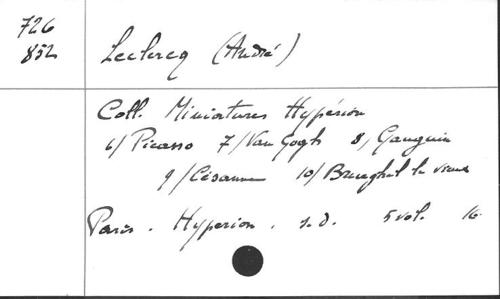 726
852
Leclercq (André)
Coll. Miniatures Hypérion
6/ Picasso 7/ Van Gogh 8, Gauguin
9/ Cézanne 10/ Brueghel le vieux
Paris. Hyperion. s.d. 5 vol. 16